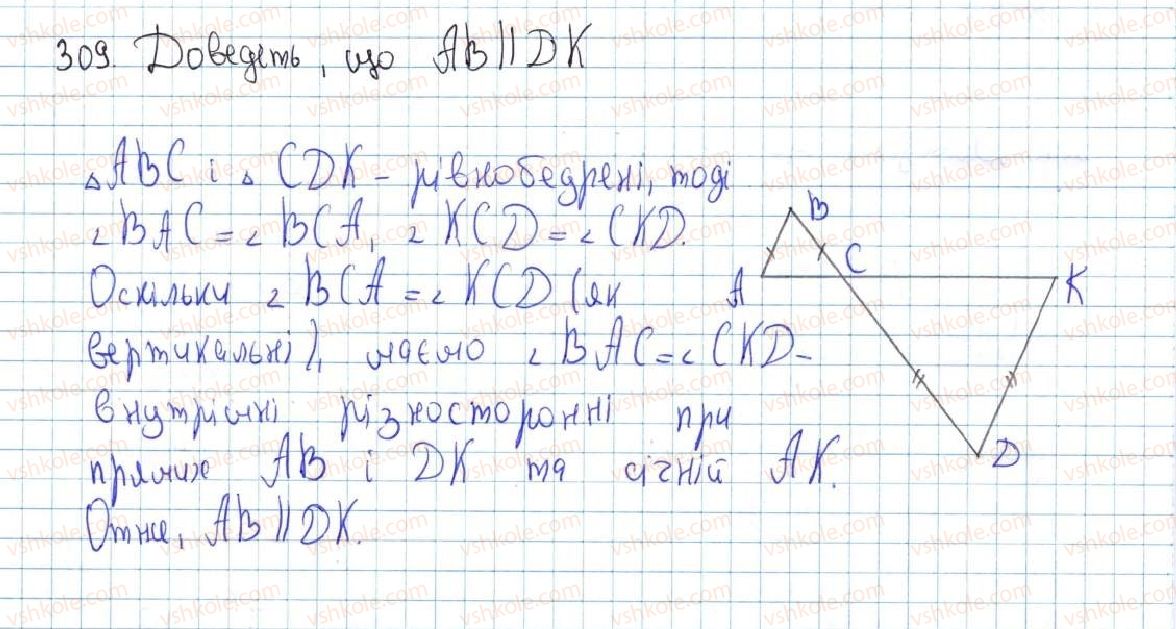 309. Доведеть, що AB || DK
△ABC і △ CDK – рівнобедрені, тоді
∠BAC = ∠BCA, ∠KCD = ∠CKD.
Оскільки ∠BCA = ∠KCD (як
вертикальні), маємо ∠BAC = ∠CKD –
внутрішні різносторонні при
прямих AB і DK та січній AK.
Отже, AB || DK.
B
C
A
K
D
vshkole.com